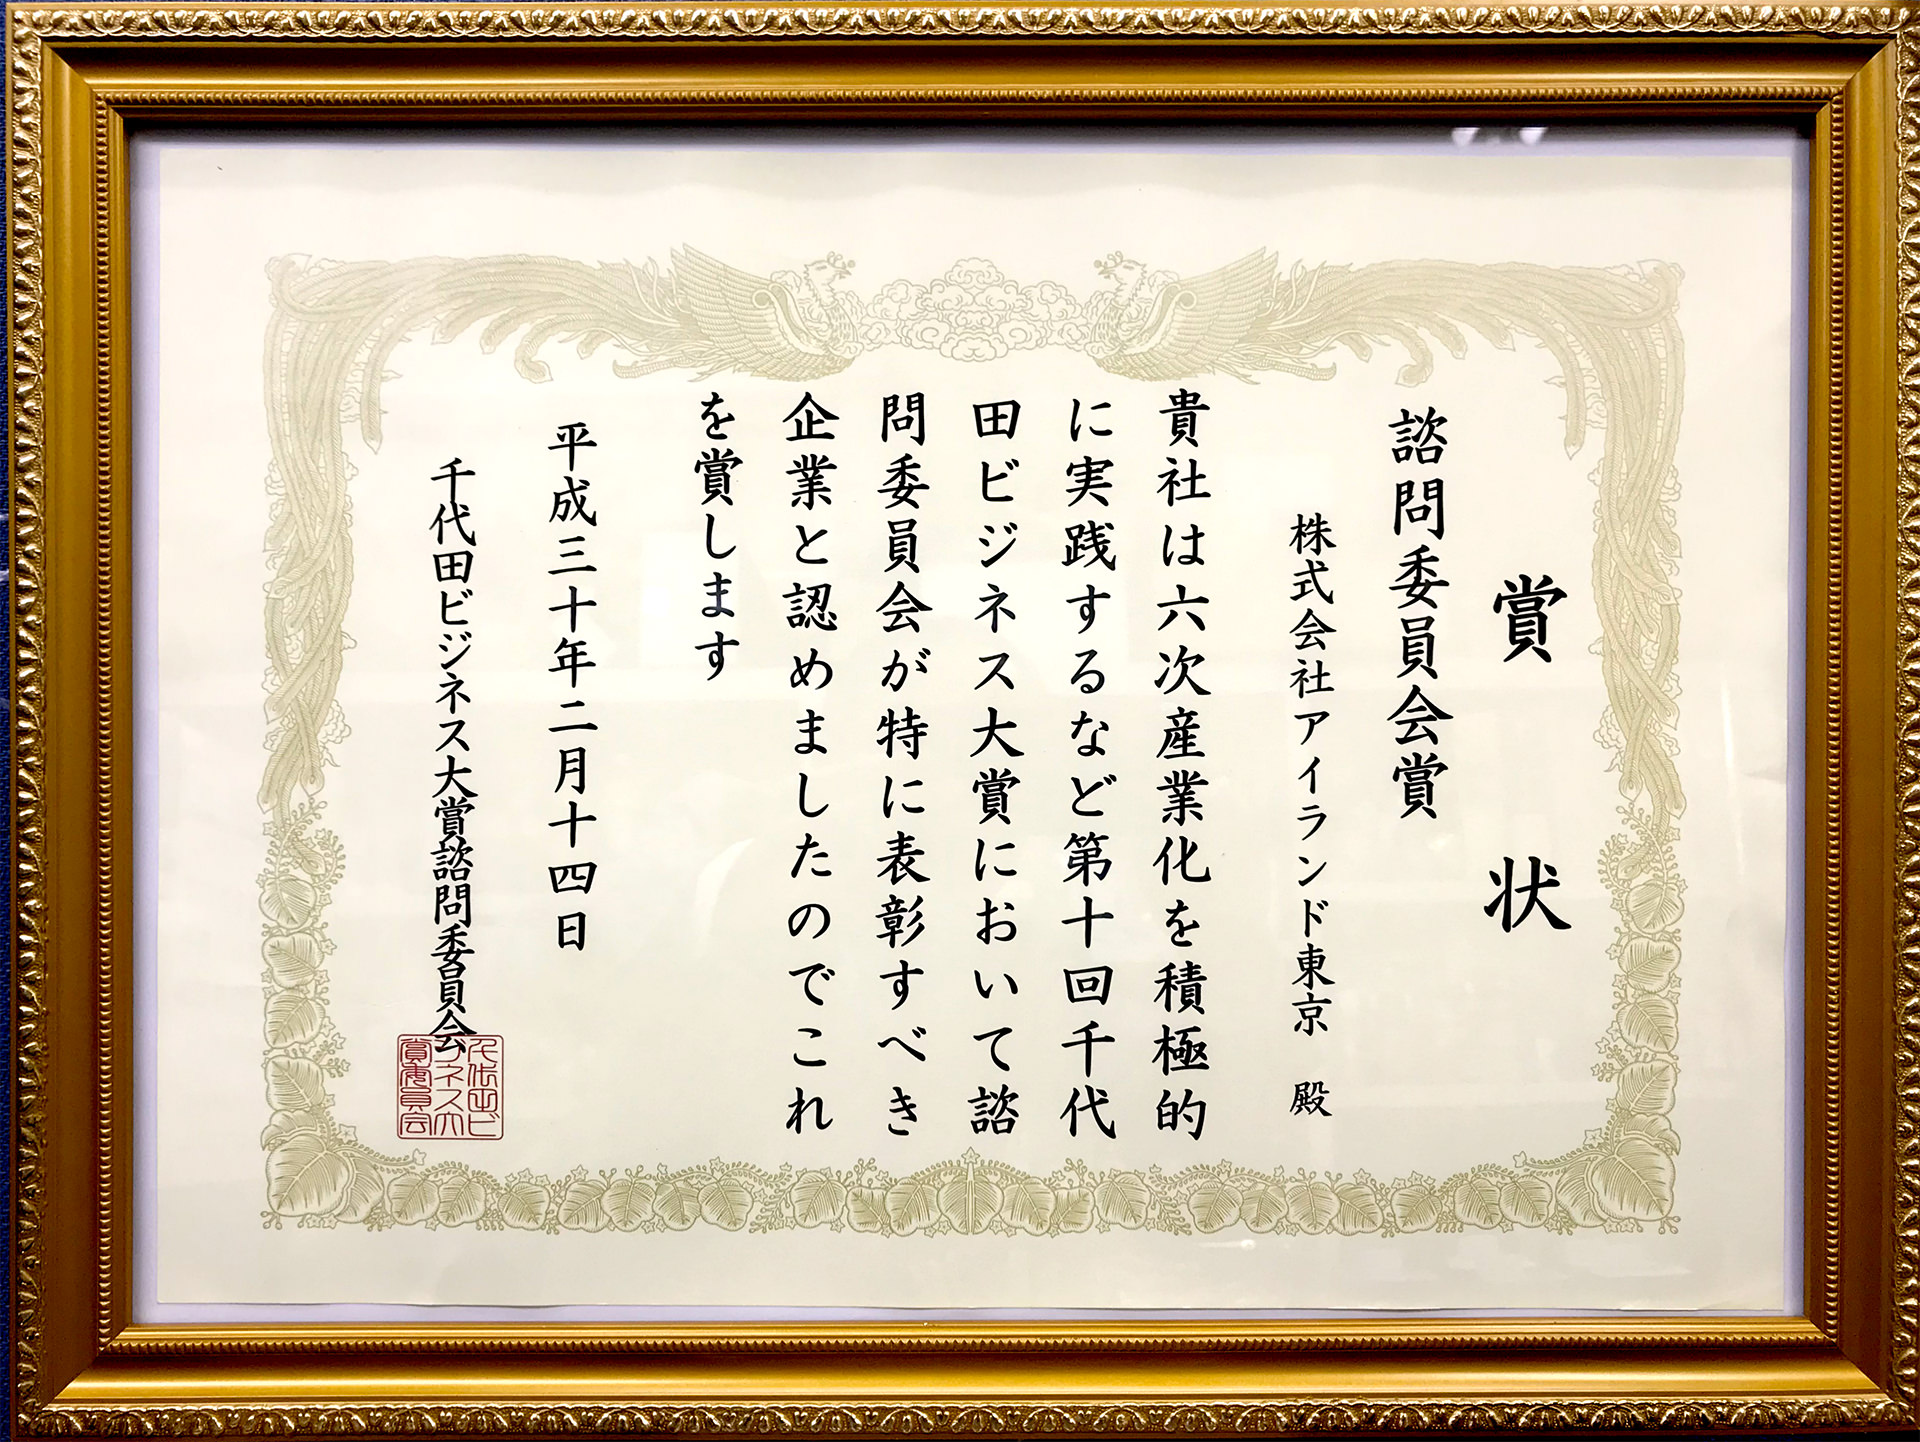 賞状
諮問委員会賞
株式会社アイランド東京 殿
貴社は六次産業化を積極的
に実践するなど第十回千代
田ビジネス大賞において諮
問委員会が特に表彰すべき
企業と認めましたのでこれ
を賞します
平成三十年二月十四日
千代田ビジネス大賞諮問委員会
千代田ビ
ジネス大
賞委員会